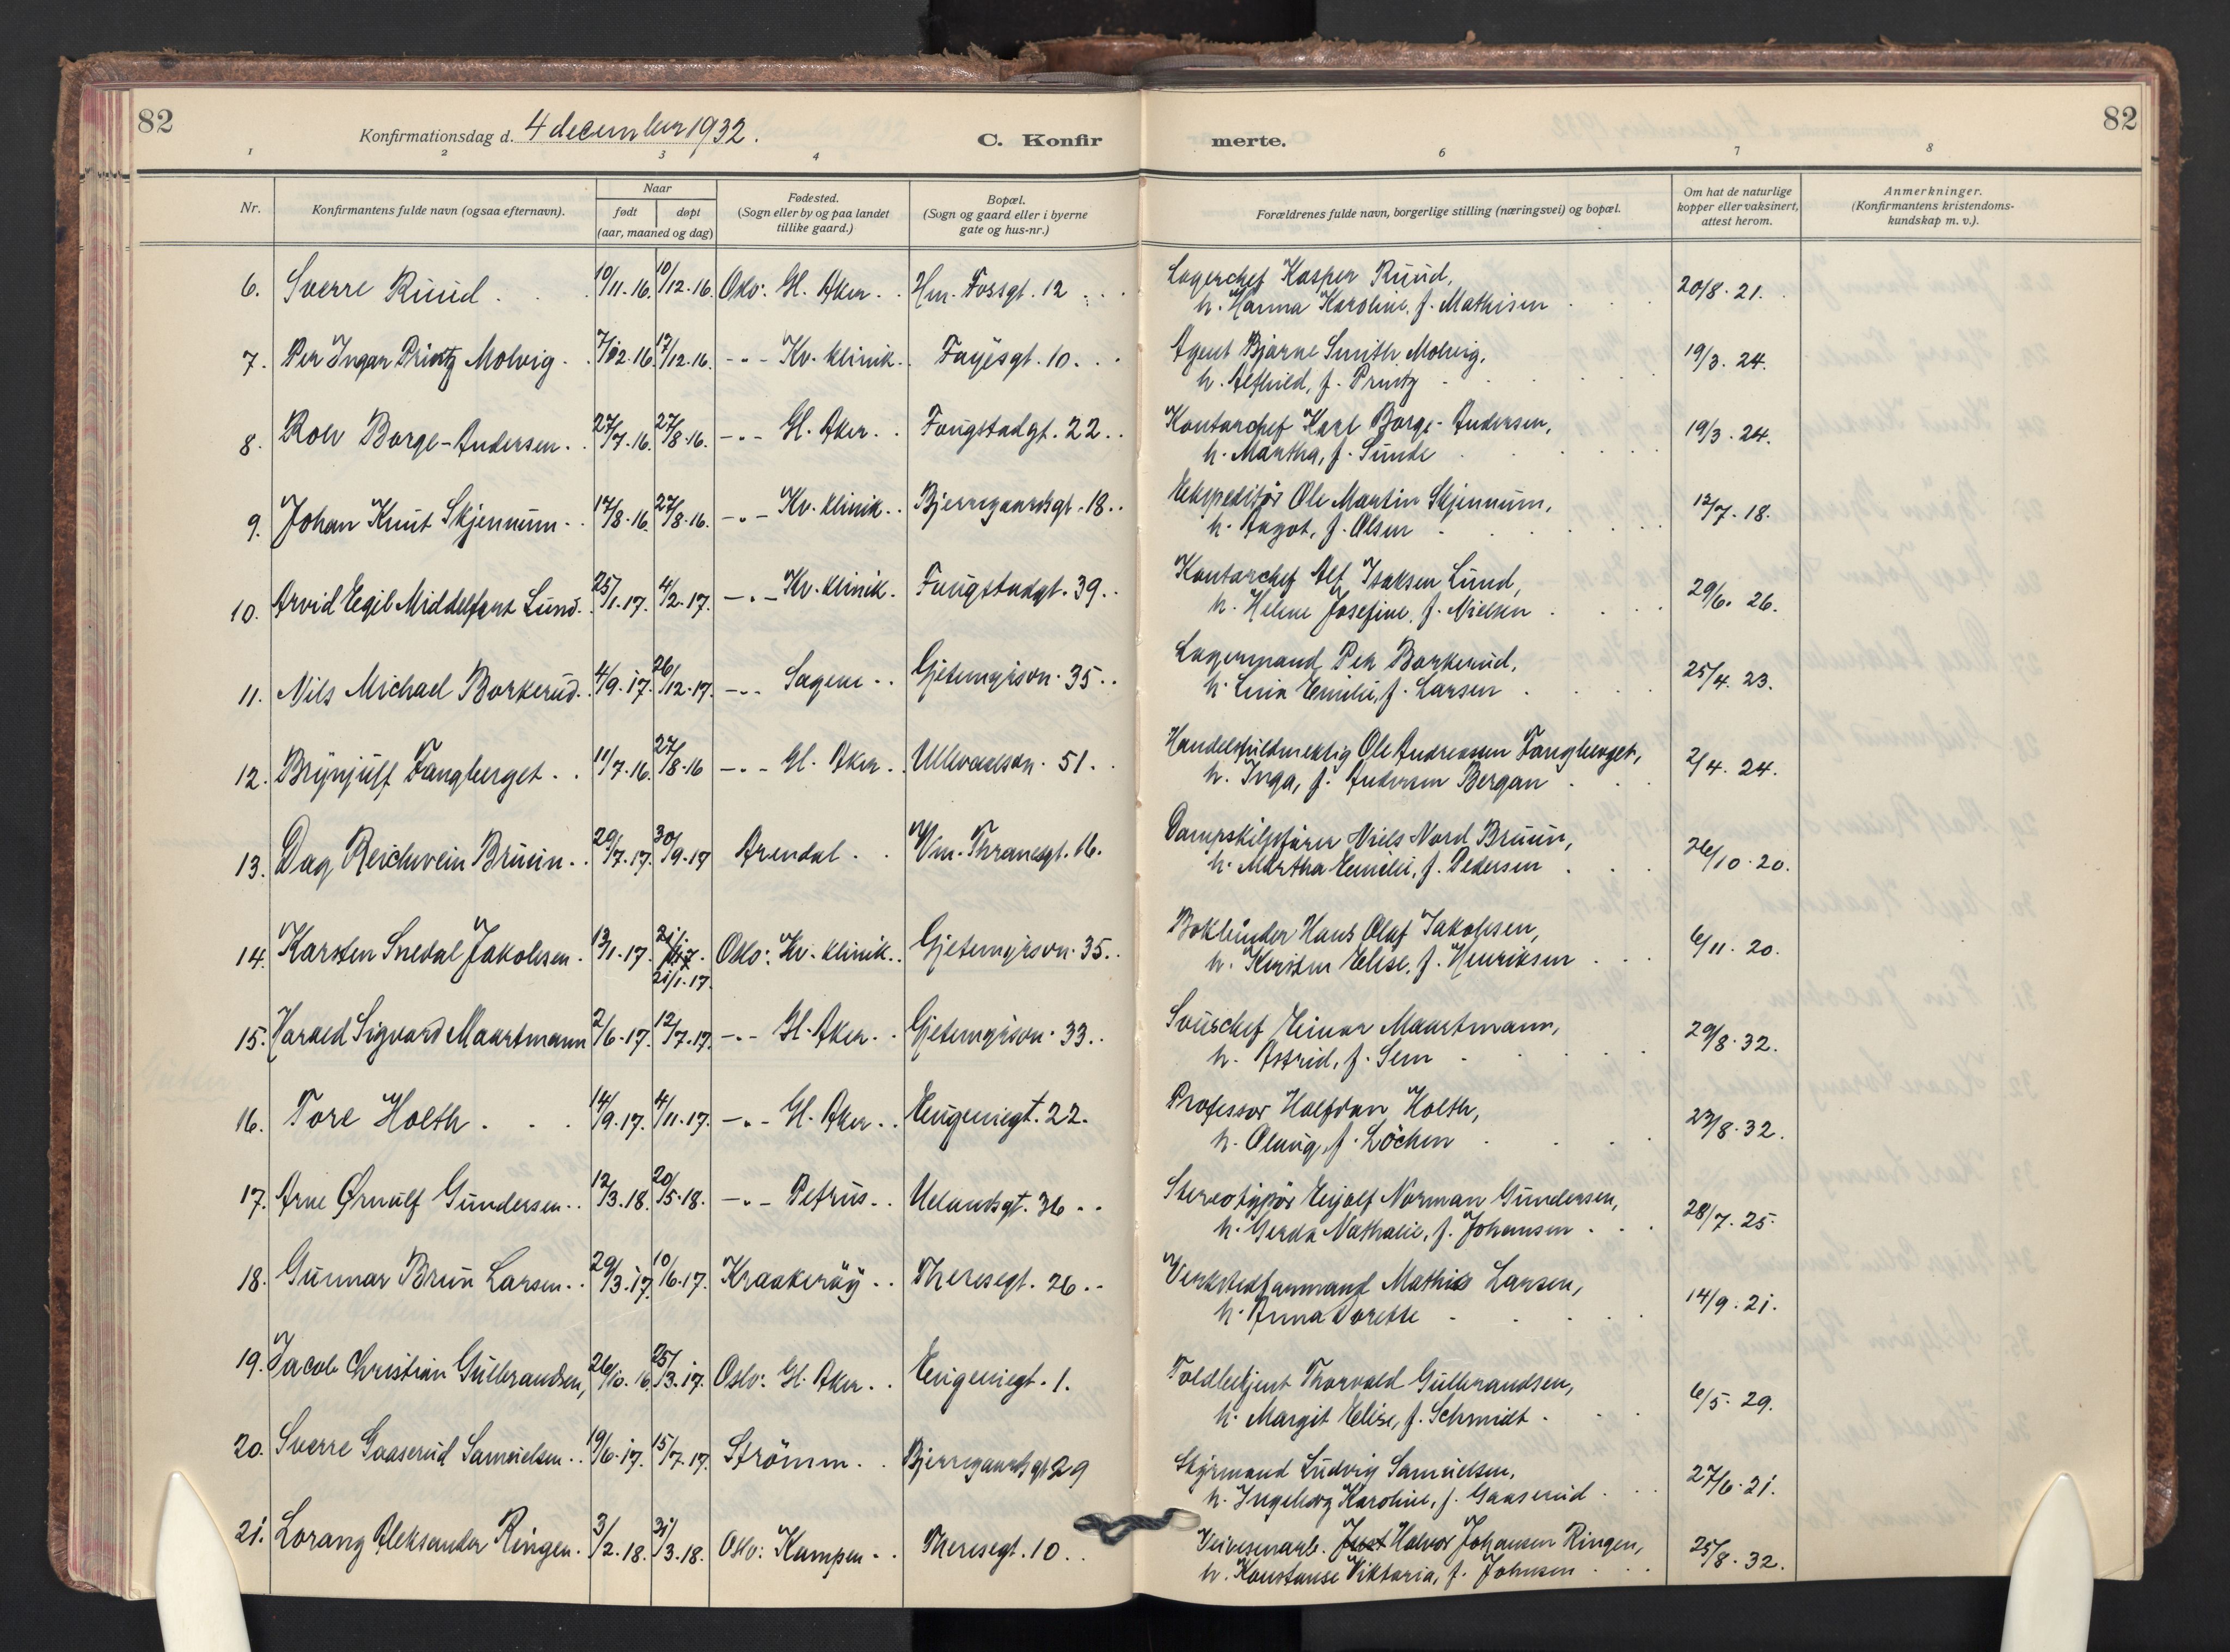 82
Konfirmationsdag d. 4 december 1932.
C. Konfir
merte.
82
1 2 3 4 6 7 8
Nr.
Konfirmantens fulde navn (ogsaa efternavn).
Naar
født døpt
(aar, maaned og dag)
Fødested.
(Sogn eller by og paa landet
tillike gaard.)
Bopæl.
(Sogn og gaard eller i byerne
gate og hus-nr.)
Forældrenes fulde navn, borgerlige stilling (næringsvei) og bopæl.
Om hat de naturlige
kopper eller vaksinert,
attest herom.
Anmerkninger.
(Konfirmantens kristendoms-
kundskap m. v.).
6. Sverre Ruud . . . 10/11.16. 10/12.16. Oslo: Gl. Aker . . Hm. Fossgt. 12 . . .
Lagerchef Kasper Ruud,
h. Hanna Karoline, f. Mathisen . . 20/8. 21.
7. Per Ingar Printz Molvig . . 7/12.16. 17/12.16. -"- Kv. klinik . . Fayesgt. 10 . . .
Agent Bjarne Smith Molvig,
h. Alfhild, f. Printz . . . 19/3. 24.
8. Rolv Borge-Andersen . . 27/7.16. 27/8.16. -"- Gl. Aker . . Fougstadgt. 22 . .
Kontorchef Karl Borge-Andersen,
h. Martha, f. Sunde . . . 19/3. 24.
9. Johan Knut Skjennum . . 17/8.16. 27/8.16. -"- Kv. klinik . . Bjerregaardsgt. 18 . .
Ekspeditør Ole Martin Skjennum,
h. Aagot, f. Olsen . . . 12/7. 18.
10. Arvid Egil Middelfart Lund . . 25/1.17. 4/2.17. -"- Kv. klinik . Fougstadgt. 39 . .
Kontorchef Alf Isaksen Lund,
h. Helene Josefine, f. Nielsen . . . 29/6. 26.
11. Nils Michael Borkerud . . 4/9.17. 26/12.17. -"- Sagene . . Gjetemyrsvn. 35 . .
Lagermand Per Borkerud,
h. Lina Emilie, f. Larsen . . . 25/4. 23.
12. Brynjulf Fangberget . . 11/7.16. 27/8.16 -"- Gl. Aker . . Ullevaalsvn. 51 . .
Handelsfuldmektig Ole Andreassen Fangberget,
h. Inga, f. Andersen Bergan . . . 2/4. 24.
13. Dag Reichwein Bruun . . 29/7.17. 30/9.17 Arendal . . Vm. Thranesgt. 16.
Dampskibsfører Niels Nord Bruun,
h. Martha Emilie, f. Pedersen . . . 26/10. 20.
14. Karsten Snedal Jakobsen . 13/1.17. 21/1.17. Oslo: Kv. klinik . . Gjetemyrsvn. 35 . .
21/1.17.
Bokbinder Hans Olaf Jakobsen,
h. Kirsten Elise, f. Henriksen . . . 6/11. 20.
15. Harald Sigvard Maartmann 2/6.17. 12/7.17. -"- Gl. Aker . . Gjetemyrsvn. 33 . .
Souschef Einar Maartmann,
h. Astrid, f. Sem . . . 29/8. 32.
16. Tore Holth . . . 14/9.17. 4/11.17. -"- Gl. Aker . . Eugeniegt. 22.
Professor Halfdan Holth,
h. Olaug, f. Löchen . . . 23/8. 32.
17. Arne Ørnulf Gundersen . . 12/3.18. 20/5.18. -"- Petrus . . Uelandsgt. 36 . .
Stereotypør Eyjolf Norman Gundersen,
h. Gerda Nathalie, f. Johansen . . . 28/7. 25.
18. Gunnar Brun Larsen . . 29/3.17. 10/6.17. Kraakeröy . . Theresegt. 26 . .
Verkstedformand Mathis Larsen,
h. Anna Dorethe . . . 14/9. 21.
19. Jacob Christian Gulbrandsen, 26/10.16. 25/3.17. Oslo: Gl. Aker . . Eugeniegt. 1.
Toldbetjent Thorvald Gulbrandsen,
h. Margit Elise, f. Schmidt . . . 6/5. 29.
20. Sverre Gaaserud Samuelsen . . 19/6.17. 15/7.17. Strömm . . Bjerregaardsgt 29
Styrmand Ludvig Samuelsen,
h. Ingeborg Karoline, f. Gaaserud . . . 27/6. 21.
21. Lorang Aleksander Ringen . 3/2.18. 31/3.18. Oslo: Kampen . . Theresegt. 10 . .
Veivesenarb. Halvor Johansen Ringen,
h. Konstanse Viktoria, f. Johnsen . . . 25/8. 32.